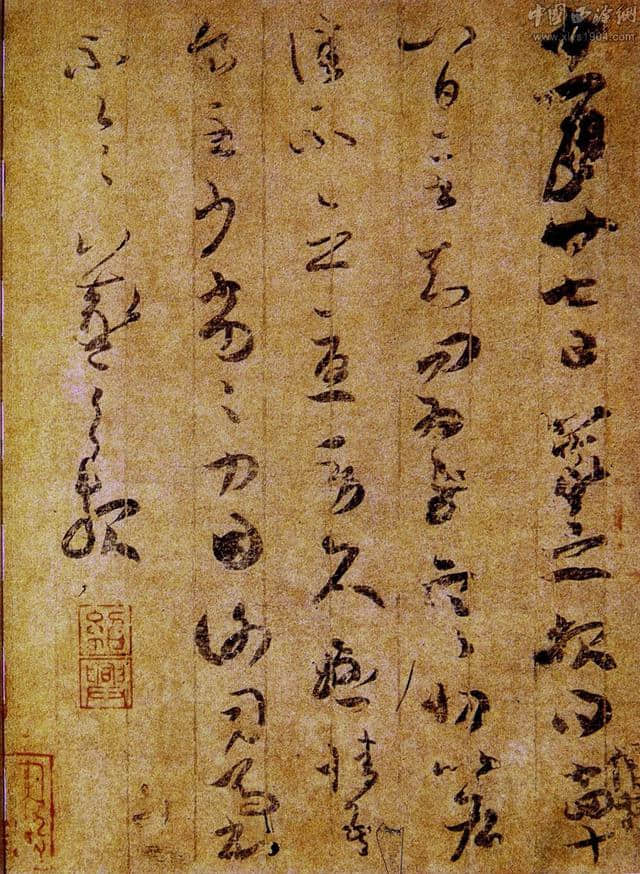 中国西泠網
www.xlys1904.com
十一月廿七日羲之報得十四十
八日二書知問為慰寒切比各
佳不念憂勞久懸情吾
食至少劣劣力因謝司馬書
不一一羲之報
紹興